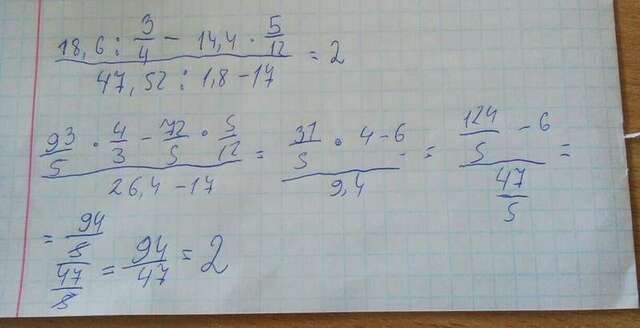 (18,6 : 3/4 - 14,4 · 5/12) / (47,52 : 1,8 - 17) = 2
(93/5 · 4/3 - 72/5 · 5/12) / (26,4 - 17) = (31/5 · 4 - 6) / 9,4 = (124/5 - 6) / (47/5) =
= (94/5) / (47/5) = 94/47 = 2